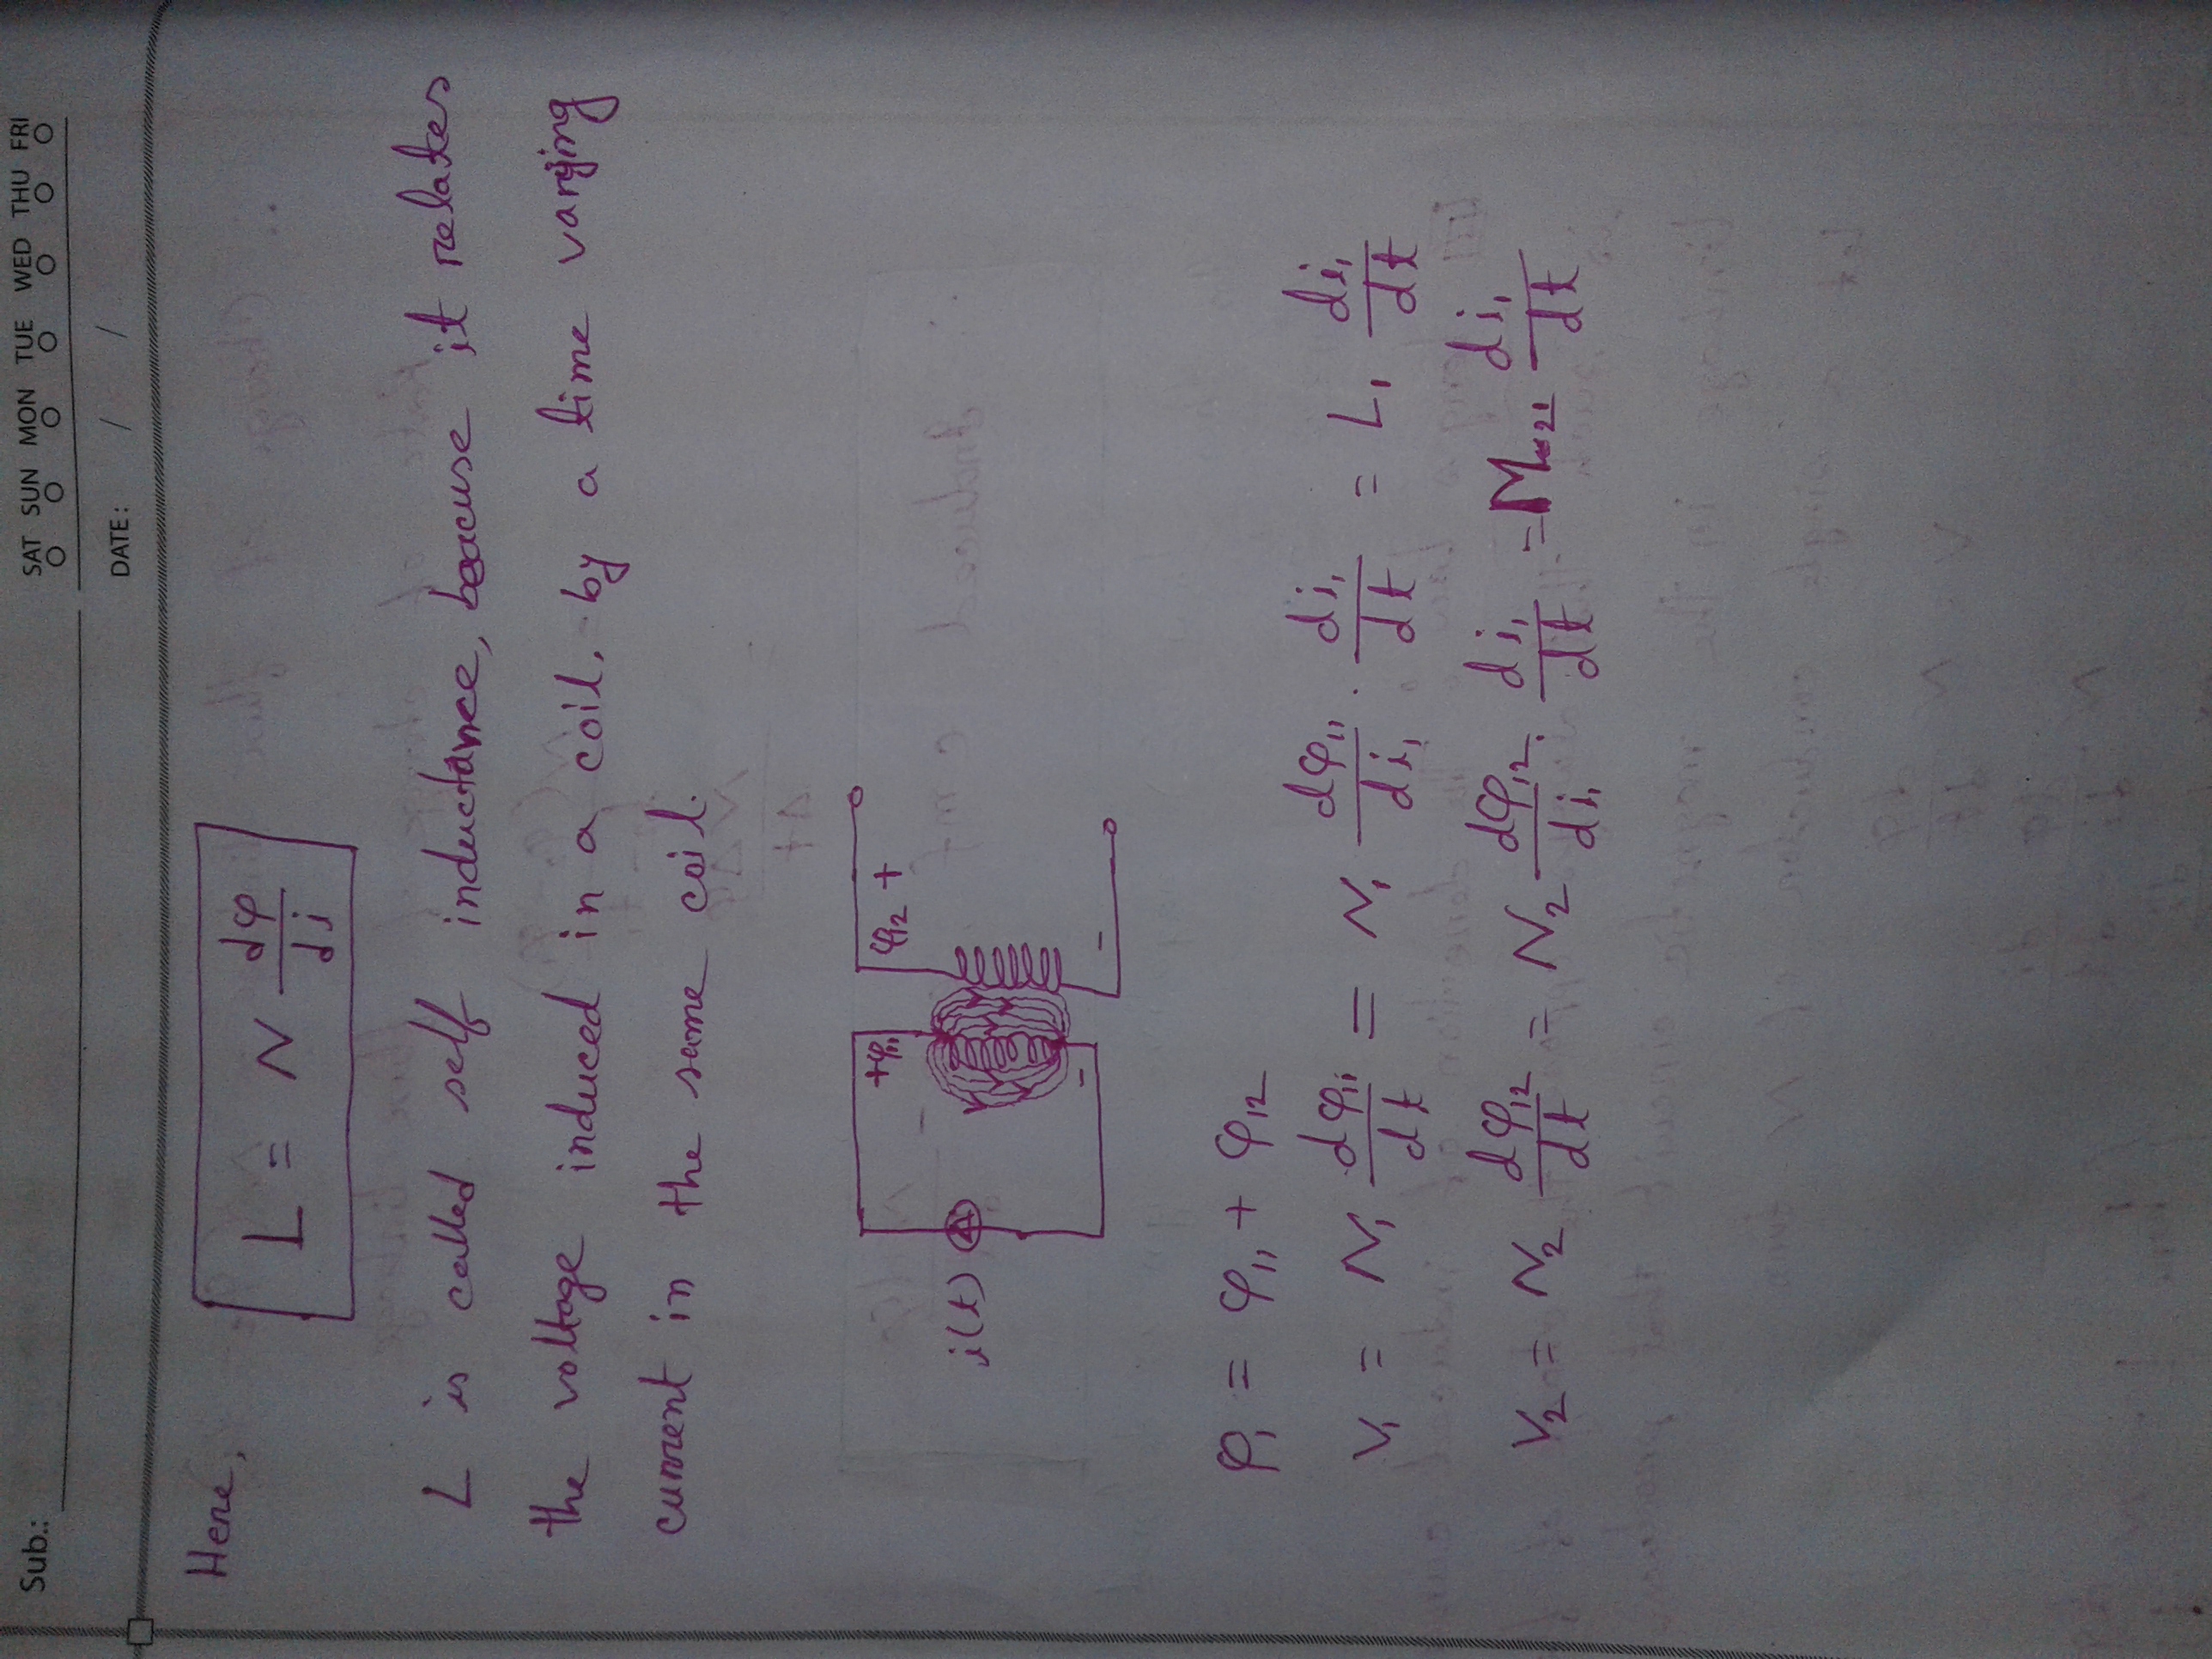 Sub.:
SAT SUN MON TUE WED THU FRI
DATE: / /
Here,
L = N dφ/di
L is called self inductance, beacuse it relates
the voltage induced in a coil. by a time varying
current in the same coil.
+φ₁₁ φ₁₂ +
i(t)
- -
φ₁ = φ₁₁ + φ₁₂
V₁ = N₁ dφ₁₁/dt = N₁ dφ₁₁/di₁ · di₁/dt = L₁ di₁/dt
V₂ = N₂ dφ₁₂/dt = N₂ dφ₁₂/di₁ · di₁/dt = M₂₁ di₁/dt